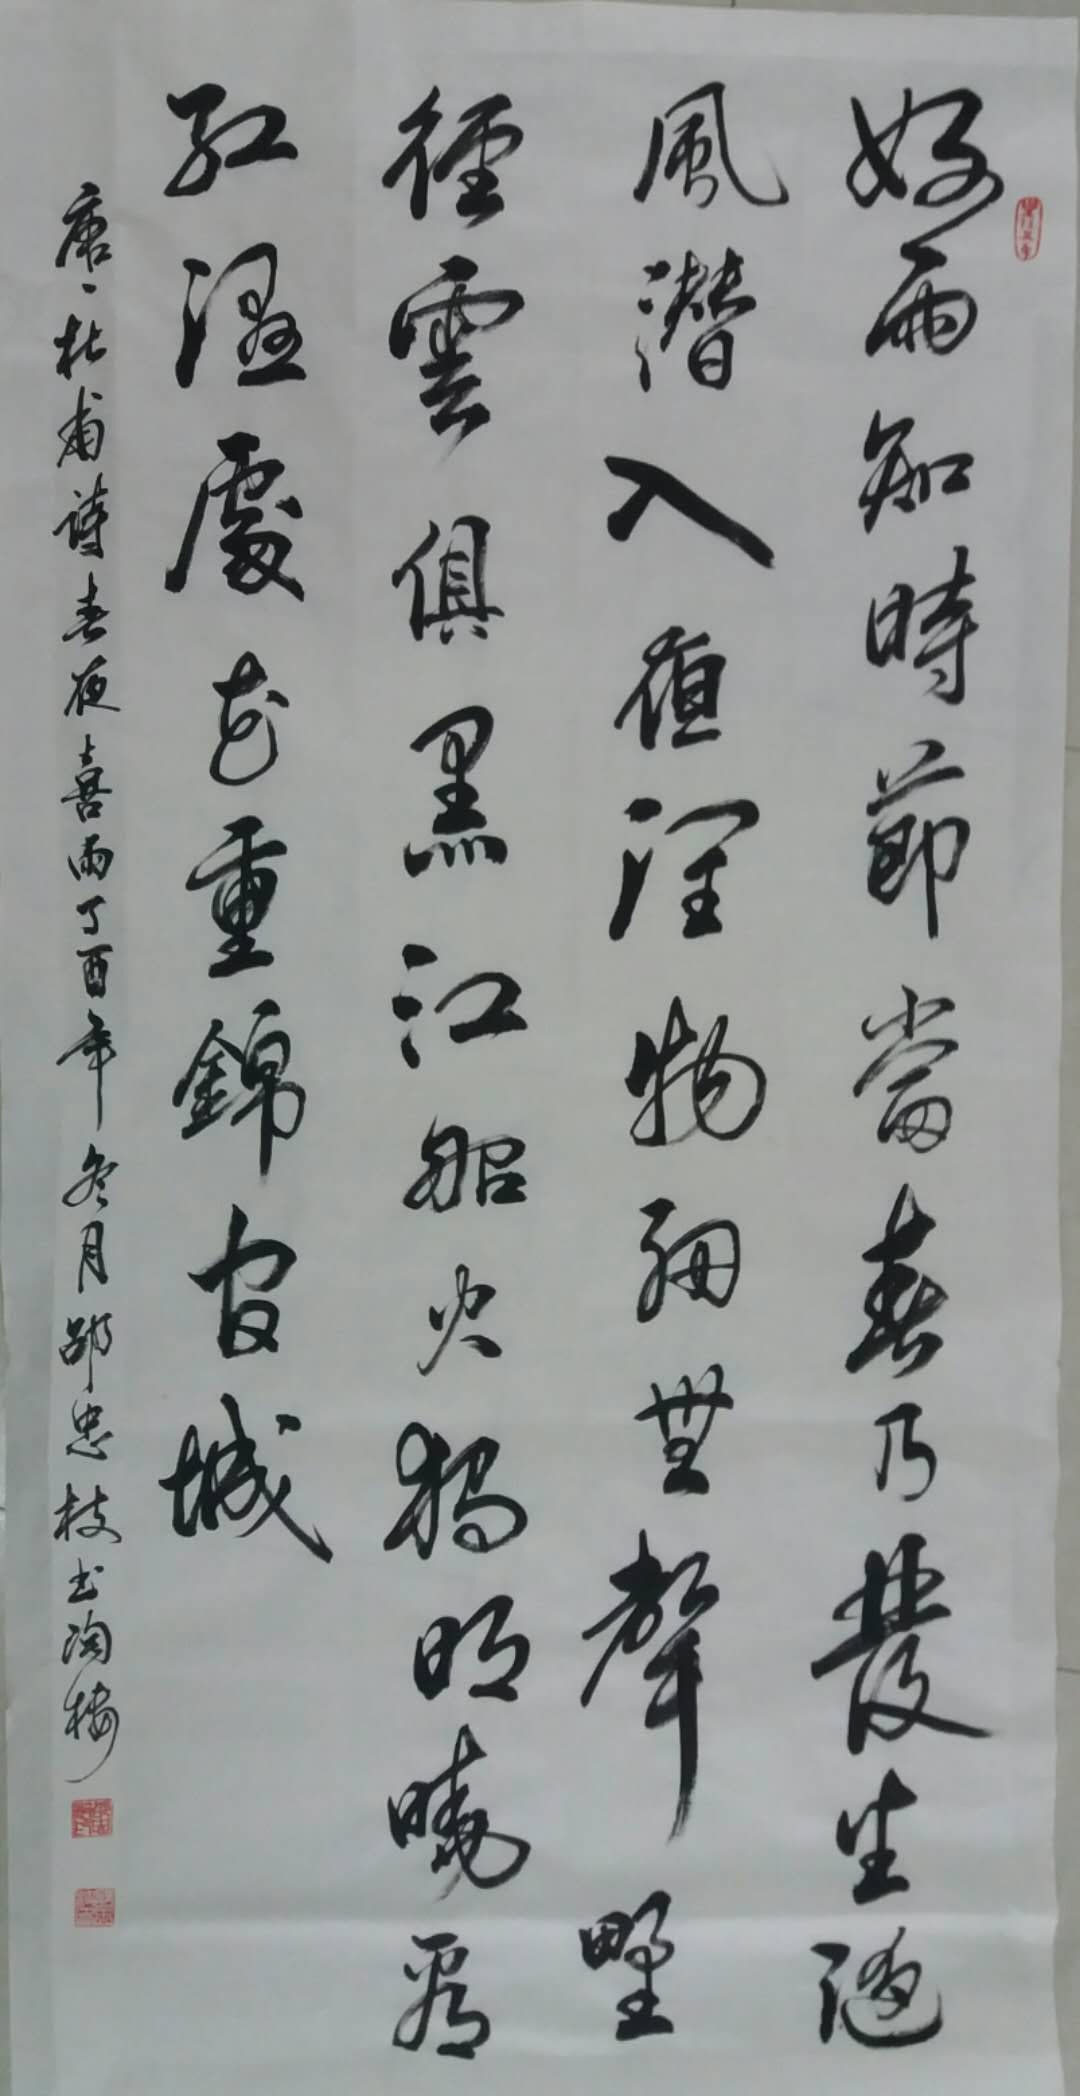 好雨知時節當春乃發生隨
風潛入夜潤物細無聲野
徑雲俱黑江船火獨明曉看
紅濕處花重錦官城
唐、杜甫詩春夜喜雨丁酉年冬月邵忠枝书陶楼